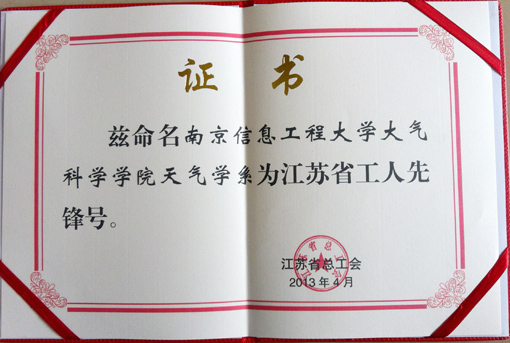 证书
兹命名南京信息工程大学大气
科学学院天气学系为江苏省工人先
锋号。
江苏省总工会
2013年4月
江苏省总工会